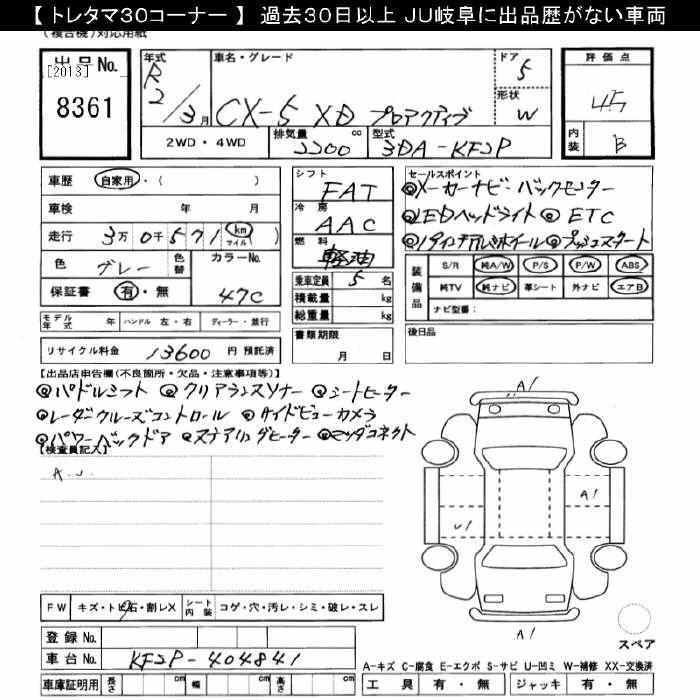 【 トレタマ30コーナー 】 過去30日以上 JU岐阜に出品歴がない車両
(複合機)対応用紙
出品No. [2013] 8361
年式 R 2/3月
車名・グレード CX-5 XD プロアクティブ
ドア 5
形状 W
評価点 4.5
内装 B
2WD・4WD 排気量 2200 cc 型式 3DA-KF2P
車歴 自家用・( )
車検 年 月
走行 3万0千571 km マイル ( )
色 グレー 色替 カラーNo. 47C
保証書 有・無
シフト FAT
冷房 AAC
燃料 軽油
乗車定員 5 名
積載量 kg
総重量 kg
セールスポイント
◎メーカーナビ・バックモニター
◎LEDヘッドライト ◎ETC
◎19インチアルミホイール ◎プッシュスタート
装備品 S/R 純A/W P/S P/W ABS
純TV 純ナビ 革シート 外ナビ エアB
ナビ型番:
モデル年式 年 ハンドル 左・右 ディーラー・並行
書類期限 月 日
後日品
リサイクル料金 13600 円 預託済
【出品店申告欄(不良箇所・欠品・注意事項等)】
◎パドルシフト ◎クリアランスソナー ◎シートヒーター
◎レーダークルーズコントロール ◎サイドビューカメラ
◎パワーバックドア ◎ステアリングヒーター ◎マツダコネクト
【検査員記入】
A.U.
A1
A1
U1
A1
FW キズ・トビ石・割レX シート内装 コゲ・穴・汚レ・シミ・破レ・スレ
登録No.
車台No. KF2P-404841
車庫証明用 長さ cm 幅 cm 高さ cm
スペア
A-キズ C-腐食 E-エクボ S-サビ U-凹ミ W-補修 XX-交換済
工具 有・無 ジャッキ 有・無